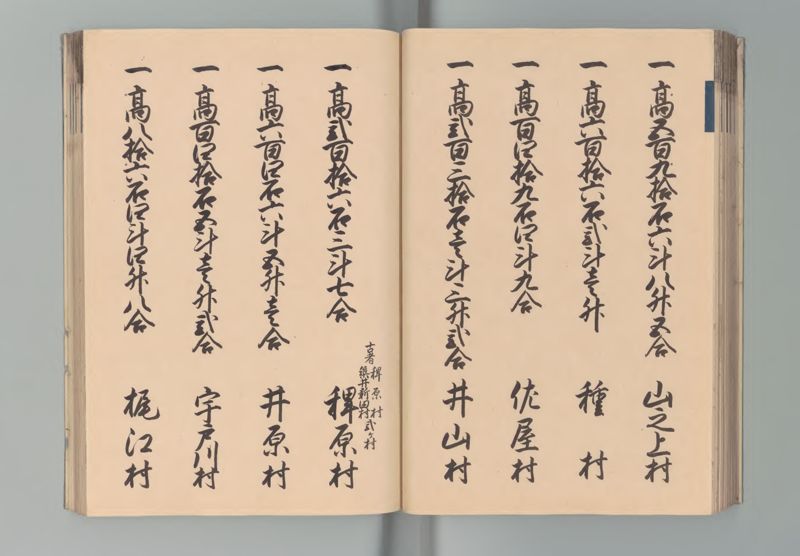 一高五百九拾石六斗八升五合 山之上村
一高六百拾六石弐斗壱升 種村
一高百四拾九石四斗九合 佐屋村
一高弐百三拾石壱斗三升弐合 井山村
古者 稗原村
熊井新田村 弐ヶ村
一高弐百拾六石三斗七合 稗原村
一高六百四石六斗五升壱合 井原村
一高百四拾石五斗壱升弐合 宇戸川村
一高八拾六石四斗四升八合 梶江村